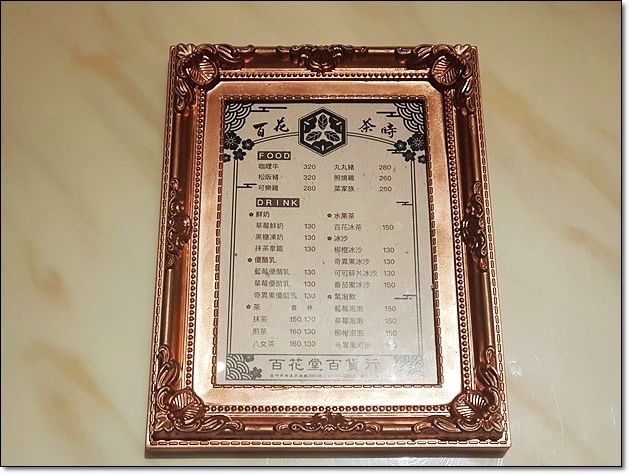 百花 茶時
FOOD
咖哩牛 320 丸丸豬 280
松阪豬 320 照燒雞 260
可樂雞 280 菜家族 250
DRINK
鮮奶 水果茶
草莓鮮奶 130 百花冰茶 150
黑糖凍奶 130 冰沙
抹茶拿鐵 130 柳橙冰沙 130
優酪乳 奇異果冰沙 130
藍莓優酪乳 130 可可碎片冰沙 130
草莓優酪乳 130 番茄蜜冰沙 150
奇異果優酪乳 130 氣泡飲
茶 壺 杯 藍莓泡泡 130
抹茶 150 130 草莓泡泡 130
煎茶 160 130 柳橙泡泡 130
八女茶 160 130 奇異果泡泡 130
百花堂百貨行